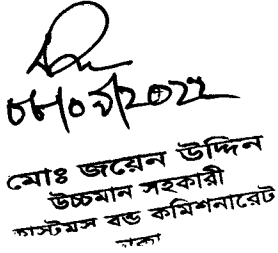 ০৮/০৯/২০২২
মোঃ জয়েন উদ্দিন
উচ্চমান সহকারী
কাস্টমস বন্ড কমিশনারেট
ঢাকা